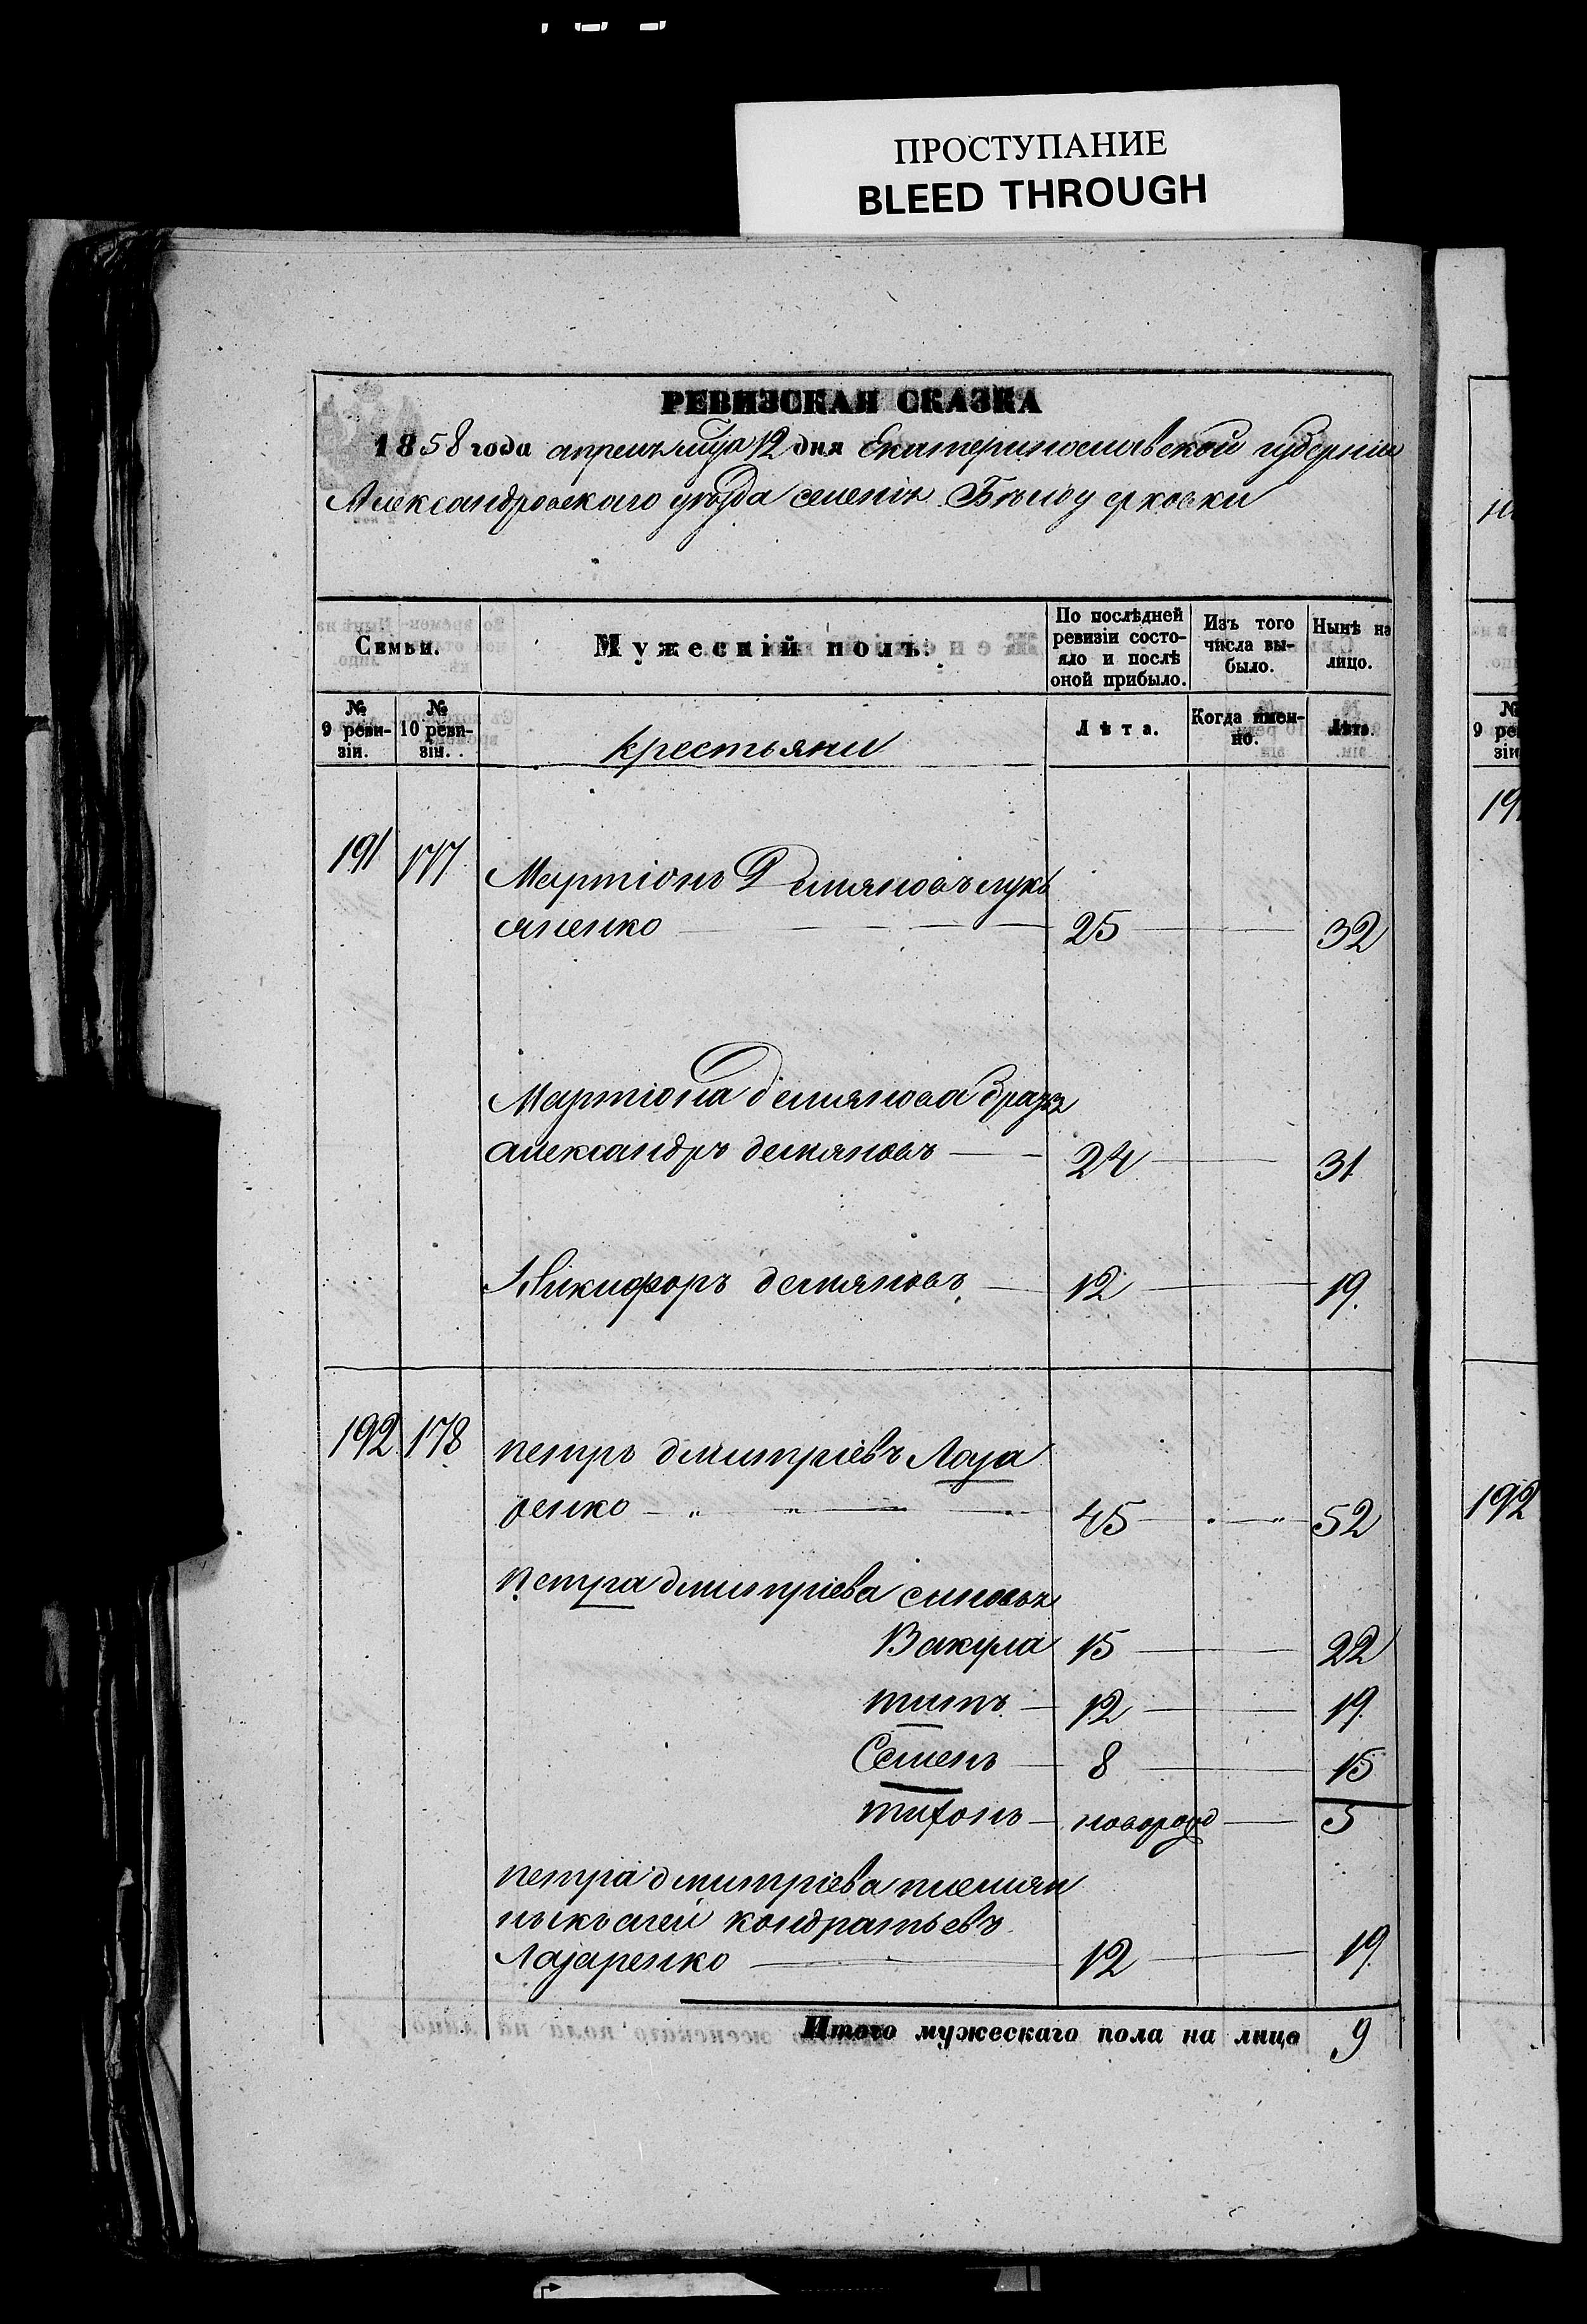 ПРОСТУПАНИЕ
BLEED THROUGH
РЕВИЗСКАЯ СКАЗКА
1858 года апрель мца 12 дня Екатеринославской губернии
Александровскаго уѣзда селенія Бѣлоцерковки
Семьи.
Мужескій полъ.
По послѣдней ревизіи состояло и послѣ оной прибыло.
Изъ того числа выбыло.
Нынѣ на лицо.
№ 9 ревизіи.
№ 10 ревизіи.
крестьяни
Лѣта.
Когда именно.
Лѣта.
191 177 Мартіонъ Демяновъ лукь
яненко 25 32
Мартіона демянова братъ
александръ демяновъ 24 31
Никифоръ демяновъ 12 19
192 178 петръ дмитріевъ Лаза
ренко 45 52
петра дмитріева сыновья
Вакула 15 22
титъ 12 19
Семенъ 8 15
тихонъ новорожд 5
петра дмитріева племян
никъ алей кондратьевъ
Лазаренко 12 19
Итого мужескаго пола на лицо 9
№
9 ре
зін
192